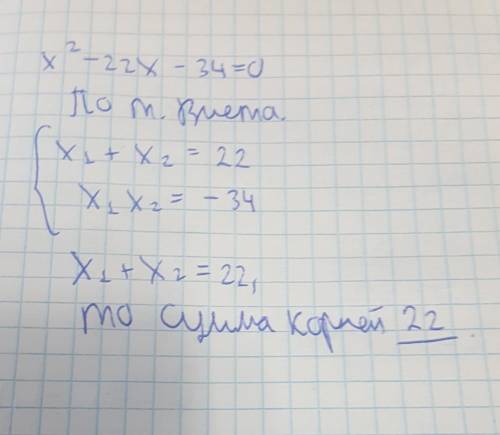 x² - 22x - 34 = 0
По т. Виета.
{ x₁ + x₂ = 22
x₁ x₂ = - 34
x₁ + x₂ = 22,
то сумма корней 22.